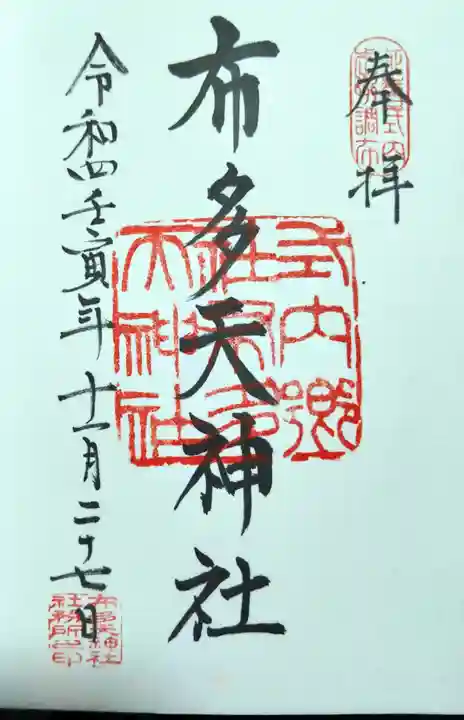 奉拝
布多天神社
令和四壬寅年十一月二十七日
式内郷社布多天神社
布多天神社社務所之印